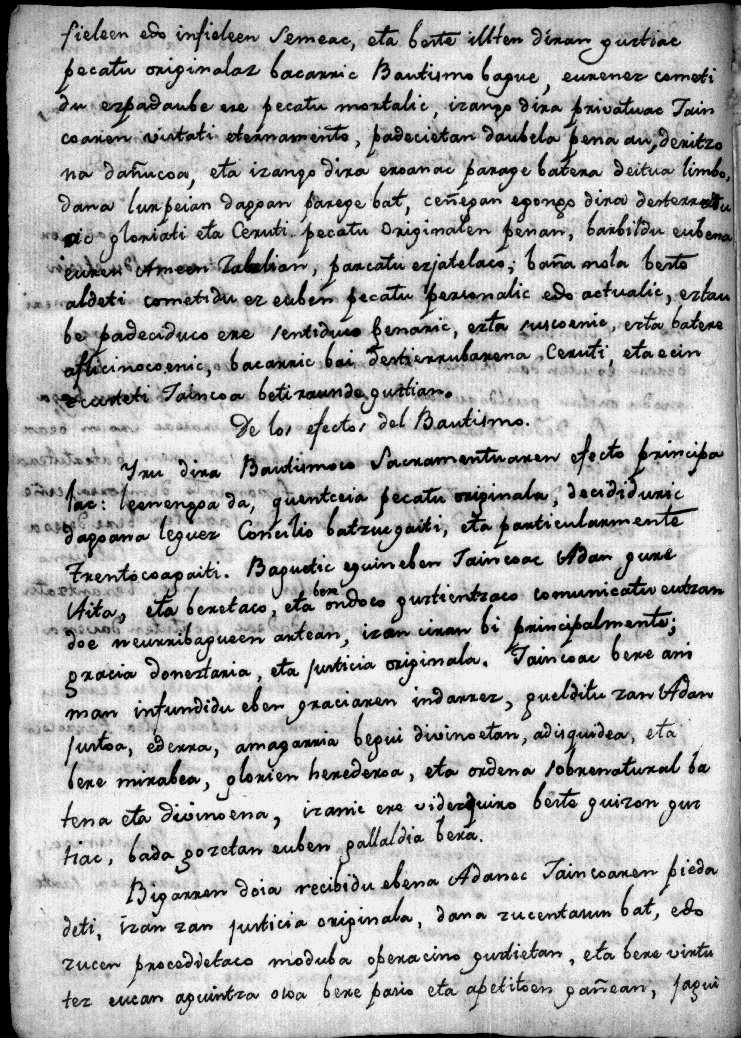 fieleen edo infieleen semeac, eta beste illten diran guztiac
pecatu originalaz bacarric Bautismo bague, eurenez cometi
du ezpadaube ere pecatu mortalic, izango dira privatuac Jain
coaren vistati eternamente, padecietan daubela pena au, deritzo
na dañucoa, eta izango dira eroanac parage batera deitua limbo,
dana lurpeian dagoan parege bat, ceñegan egongo dira desterratu
ric gloriati eta Ceruti pecatu originalen penan, barbildu eubena
euren Ameen zabelian, parcatu ezjatelaco; baña nola beste
aldeti cometidu ez euben pecatu personalic edo actualic, eztau
be padeciduco ere sentiduco penaric, ezta suscoenic, ezta batere
aflicinocoenic, bacarric bai destierrubarena Ceruti, eta ecin
ecusteti Jaincoa betiraunde guztian.
De los efectos del Bautismo.
Yru dira Bautismoco Sacramentuaren efecto principa
lac: leenengoa da, quentceia pecatu originala, decididuric
dagoana leguez Concilio batzucgaiti, eta particularmente
Trentocoagaiti. Baguetic eguin eben Jaincoac Adan gure
Aita, eta beretaco, eta bere ondoco guztientzaco comunicatu eutzan
doe neurribagueen artean, izan ciran bi principalmente;
gracia doneztaria, eta justicia originala. Jaincoac bere ani
man infundidu eben graciaren indarrez, gueldituzan Adan
justoa, ederra, amagarria begui divinoetan, adisquidea, eta
bere mirabea, glorien herederoa, eta ordena sobrenatural ba
tena eta divinoena, izanic ere viderquiro beste guizon guz
tiac, bada gozetan euben gallaldia bera.
Bigarren doia recibidu ebena Adanec Jaincoaren pieda
deti, izan zan justicia originala, dana zucentasun bat, edo
zucen procedietaco moduba operacino guztietan, eta bere virtu
tez eucan aguintza osoa bere pasio eta apetitoen gañean, jagui